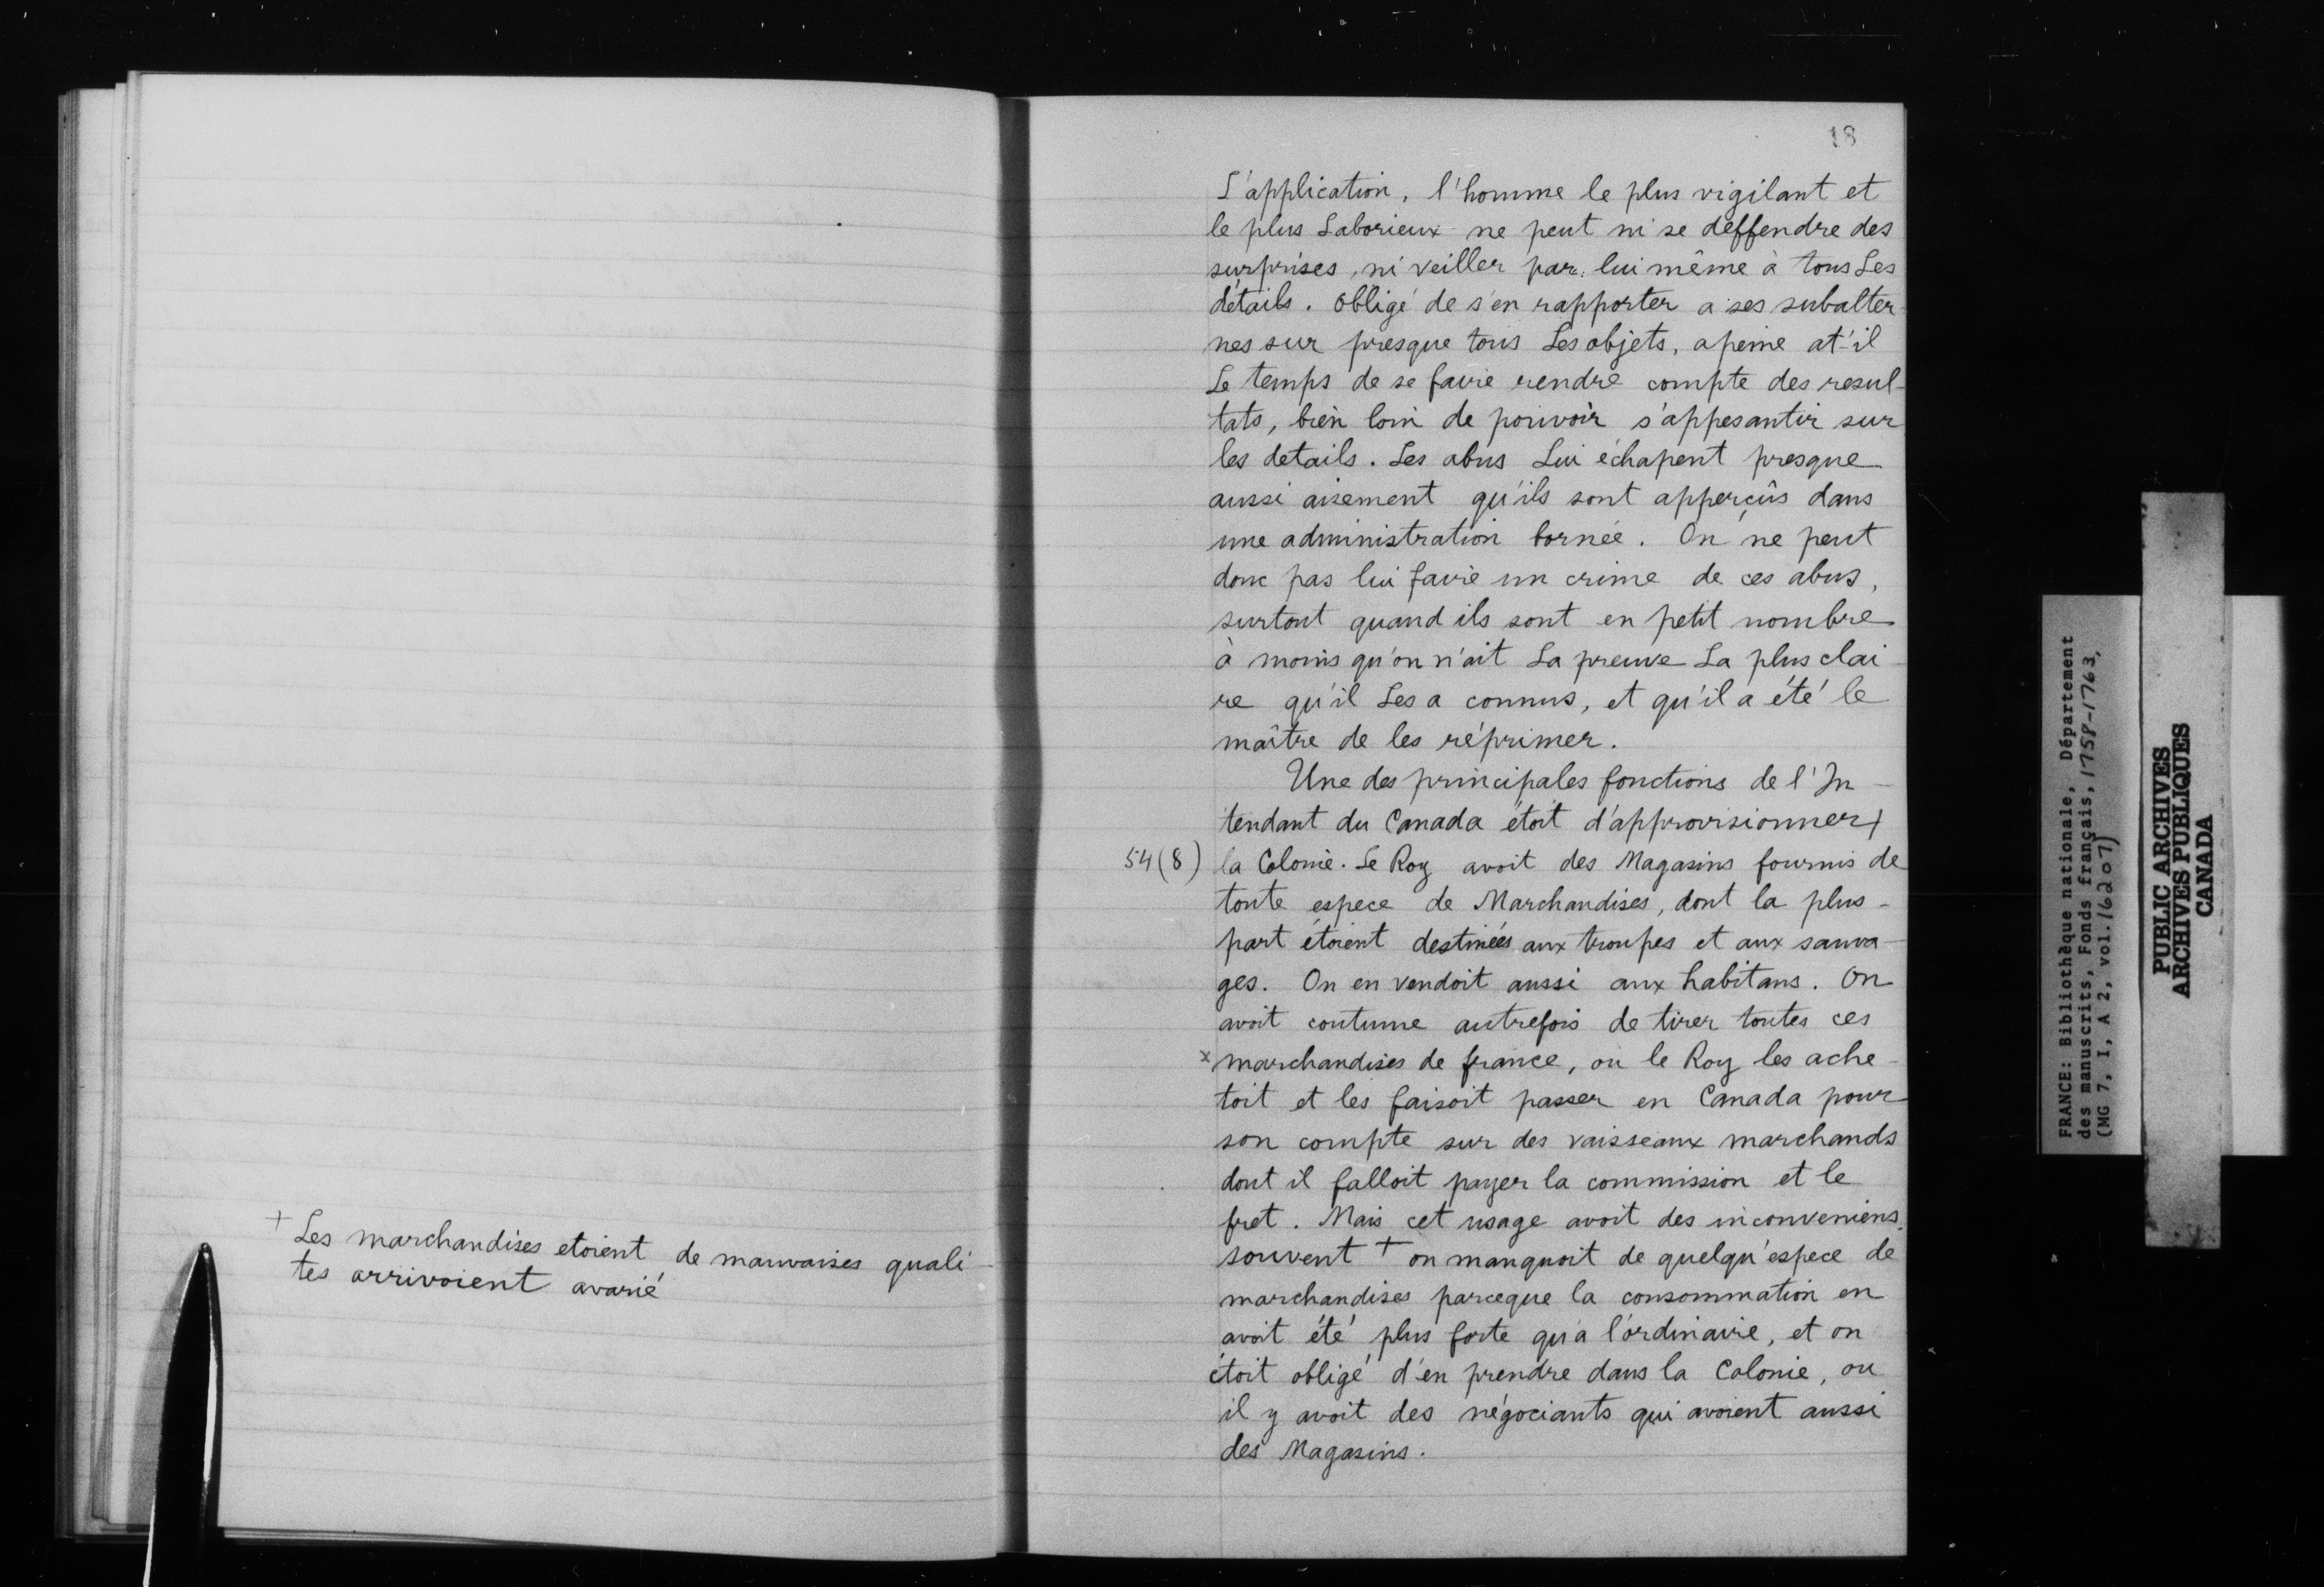 + Les marchandises etoient de mauvaises quali
tes arrivoient avarié
18
L'application, l'homme le plus vigilant et
le plus Laborieux ne peut ni se deffendre des
surprises, ni veiller par lui même à tous Les
détails. Obligé de s'en rapporter a ses subalter
nes sur presque tous Les objets, apeine at-'il
Le temps de se faire rendre compte des resul-
tats, bien loin de pouvoir s'appesantir sur
les details. Les abus Lui échapent presque
aussi aisement qu'ils sont apperçûs dans
une administration bornée. On ne peut
donc pas lui faire un crime de ces abus,
surtout quand ils sont en petit nombre
à moins qu'on n'ait La preuve La plus clai
re qu'il Les a connus, et qu'il a été le
maître de les réprimer.
Une des principales fonctions de l'In-
tendant du Canada étoit d'approvisionner+
54(8) la Colonie. Le Roy avoit des Magasins fournis de
toute espece de Marchandises, dont la plus-
part étoient destinées aux troupes et aux sauva-
ges. On en vendoit aussi aux habitans. On
avoit coutume autrefois de tirer toutes ces
x marchandises de france, ou le Roy les ache-
toit et les faisoit passer en Canada pour
son compte sur des vaisseaux marchands
dont il falloit payer la commission et le
fret. Mais cet usage avoit des inconveniens.
souvent + on manquoit de quelqu'espece de
marchandises parceque la consommation en
avoit été plus forte qu'a l'ordinaire, et on
étoit obligé d'en prendre dans la Colonie, ou
il y avoit des négociants qui avoient aussi
des Magasins.
FRANCE: Bibliothèque nationale, Département
des manuscrits, Fonds français, 1758-1763,
(MG 7, I, A 2, vol. 16207)
PUBLIC ARCHIVES
ARCHIVES PUBLIQUES
CANADA